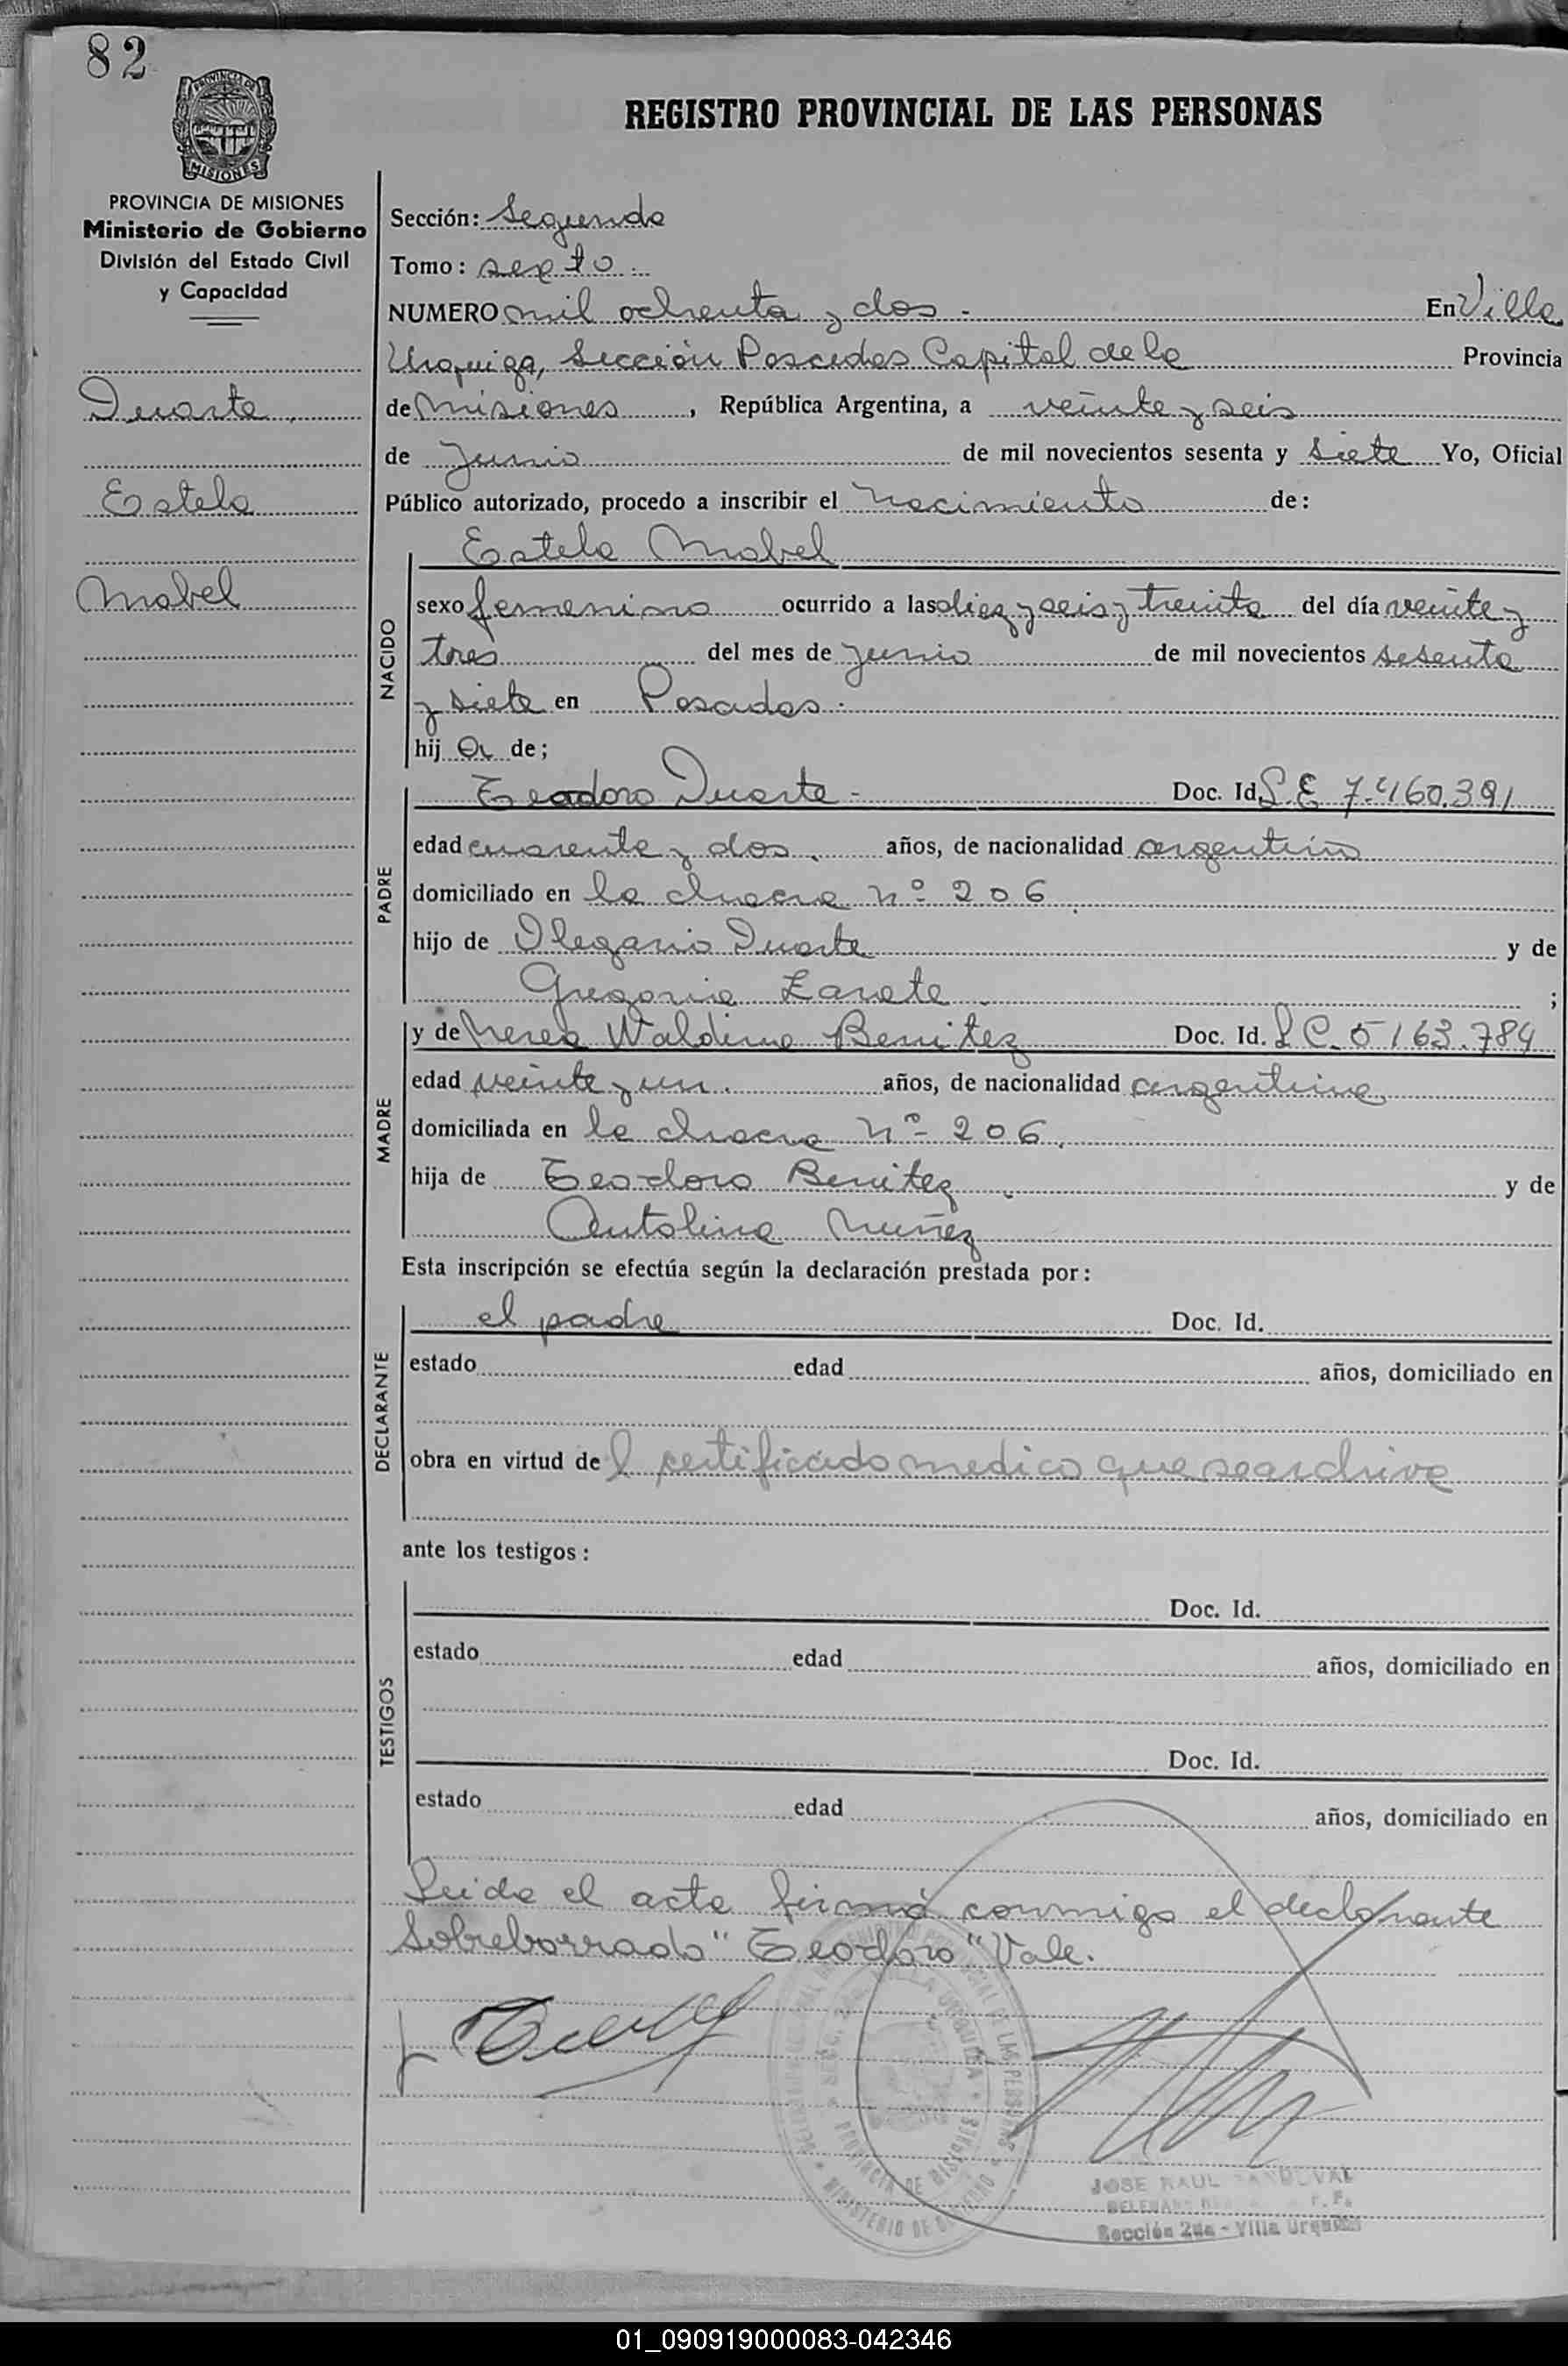 82
PROVINCIA DE
MISIONES
REGISTRO PROVINCIAL DE LAS PERSONAS
PROVINCIA DE MISIONES
Ministerio de Gobierno
División del Estado Civil
y Capacidad
Duarte
Estela
Mabel
Sección: Segunda
Tomo: sexto
NUMERO mil ochenta y dos - En Villa
Urquiza, Sección Posadas Capital de la Provincia
de Misiones, República Argentina, a veinte y seis
de Junio de mil novecientos sesenta y siete Yo, Oficial
Público autorizado, procedo a inscribir el nacimiento de:
Estela Mabel
NACIDO
sexo femenino ocurrido a las diez y seis y treinta del día veinte y
tres del mes de Junio de mil novecientos sesenta
y siete en Posadas.
hij a de;
PADRE
Teodoro Duarte - Doc. Id. L.E 7.460.391
edad cuarenta y dos. años, de nacionalidad argentino
domiciliado en la chacra nº 206.
hijo de Olegario Duarte y de
Gregoria Zarate. ;
MADRE
y de Nerea Waldina Benitez Doc. Id. L.C. 5163.784
edad veinte y un. años, de nacionalidad argentina
domiciliada en la chacra nº 206.
hija de Teodoro Benitez y de
Antolina Nuñez
Esta inscripción se efectúa según la declaración prestada por:
DECLARANTE
el padre Doc. Id.
estado edad años, domiciliado en
obra en virtud del certificado medico que se archiva
ante los testigos:
TESTIGOS
Doc. Id.
estado edad años, domiciliado en
Doc. Id.
estado edad años, domiciliado en
Leida el acta firmó conmigo el declarante
Sobreborrado "Teodoro" Vale.
VILLA URQUIZA
PROVINCIA DE MISIONES
MINISTERIO DE GOBIERNO
JOSE RAUL SANDOVAL
Sección 2da - Villa Urquiza
01_090919000083-042346